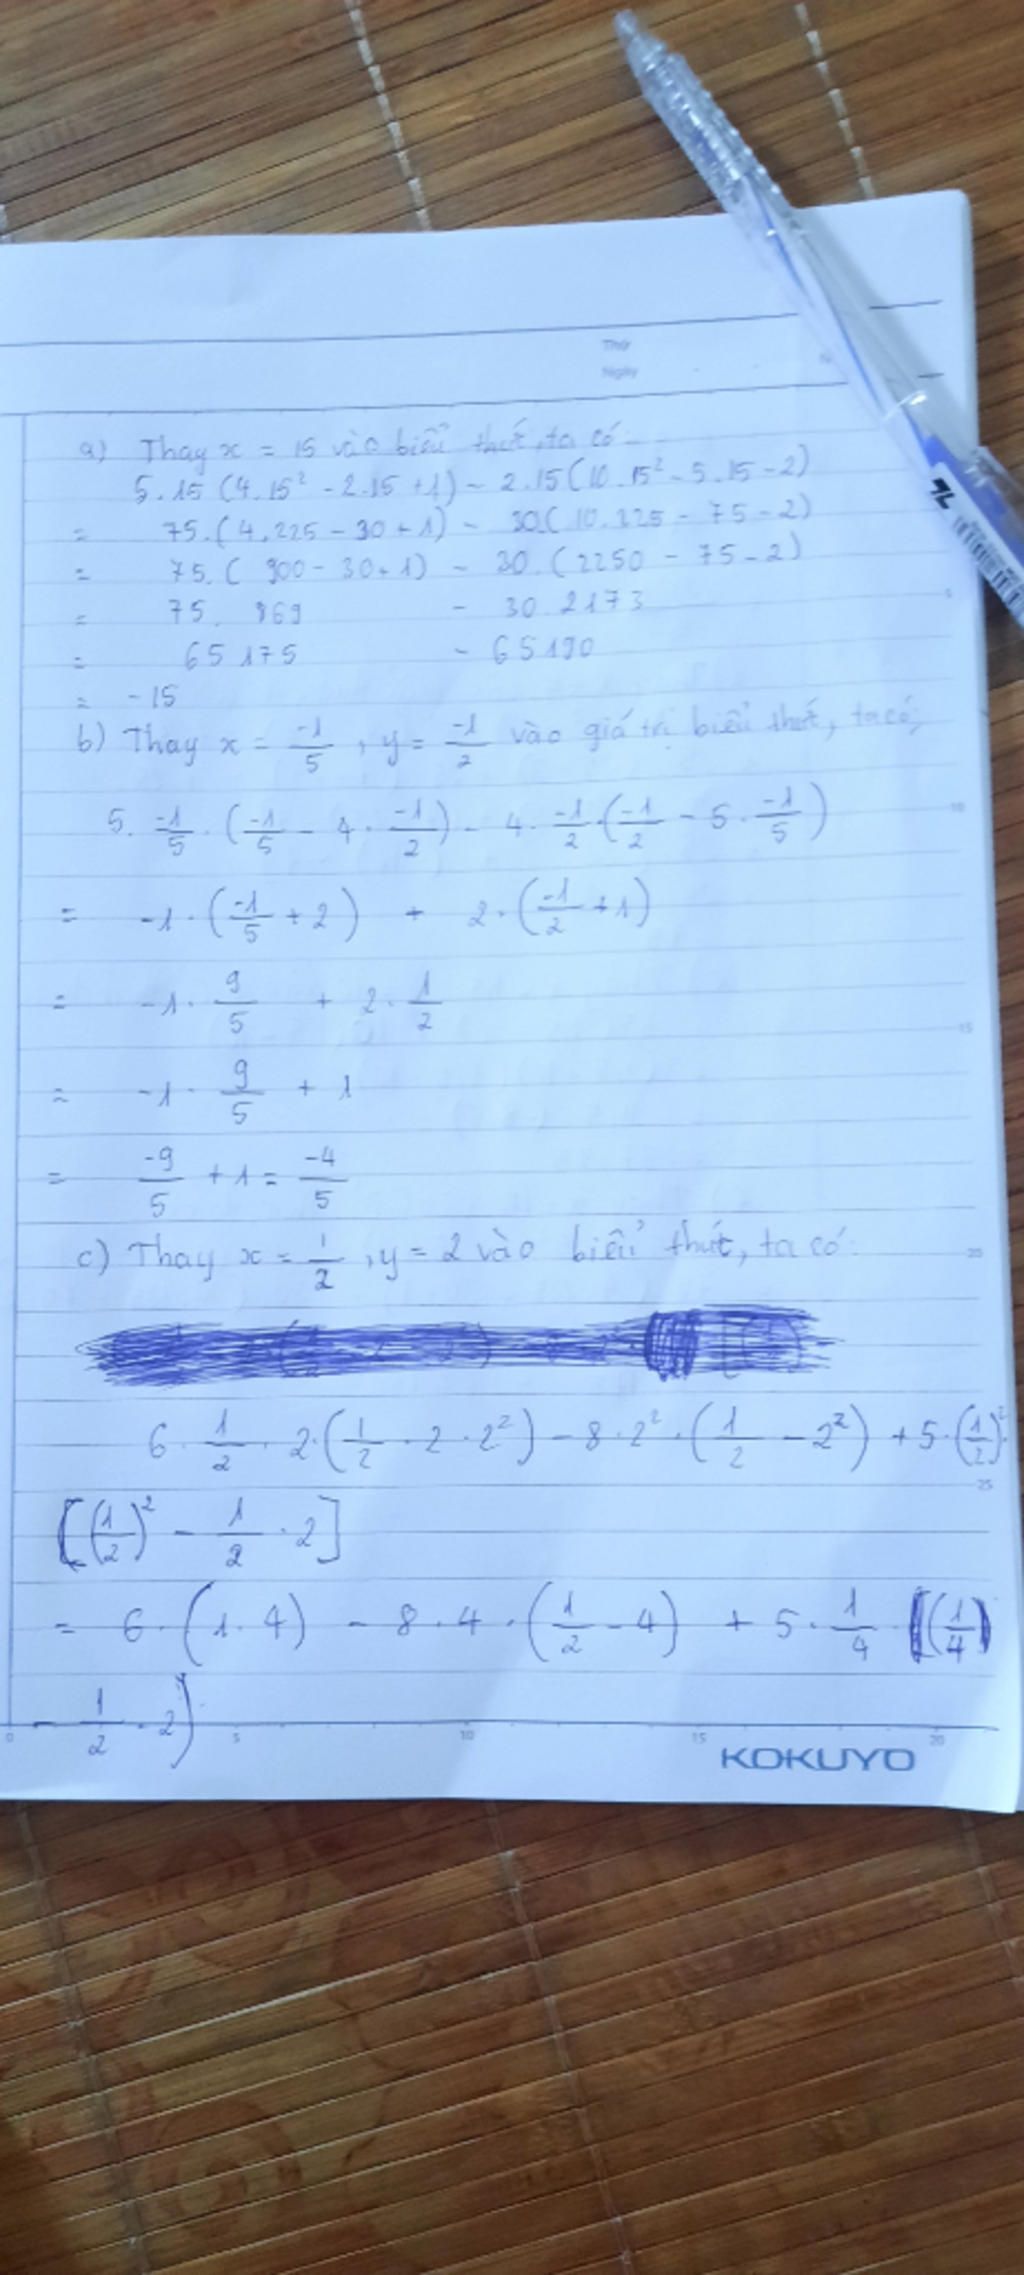 Thứ
Ngày
a) Thay x = 15 vào biểu thức, ta có
5.15 (4.15² - 2.15 + 1) - 2.15 (10.15² - 5.15 - 2)
= 75.(4.225 - 30 + 1) - 30.(10.225 - 75 - 2)
= 75.(900 - 30 + 1) - 30.(2250 - 75 - 2)
= 75. 869 - 30.2173
= 65175 - 65190
= -15
b) Thay x = -1/5, y = -1/2 vào giá trị biểu thức, ta có,
5. -1/5 . (-1/5 - 4 . -1/2) - 4. -1/2 . (-1/2 - 5 . -1/5)
= -1 . (-1/5 + 2) + 2 . (-1/2 + 1)
= -1 . 9/5 + 2 . 1/2
= -1 . 9/5 + 1
= -9/5 + 1 = -4/5
c) Thay x = 1/2, y = 2 vào biểu thức, ta có
6 . 1/2 . 2 . (1/2 . 2 . 2²) - 8 . 2² . (1/2 - 2²) + 5 . (1/2)² .
[(1/2)² - 1/2 . 2]
= 6 . (1 . 4) - 8 . 4 . (1/2 - 4) + 5 . 1/4 . [(1/4)
- 1/2 . 2)
5
10
15
20
25
0 5 10 15 20
KOKUYO